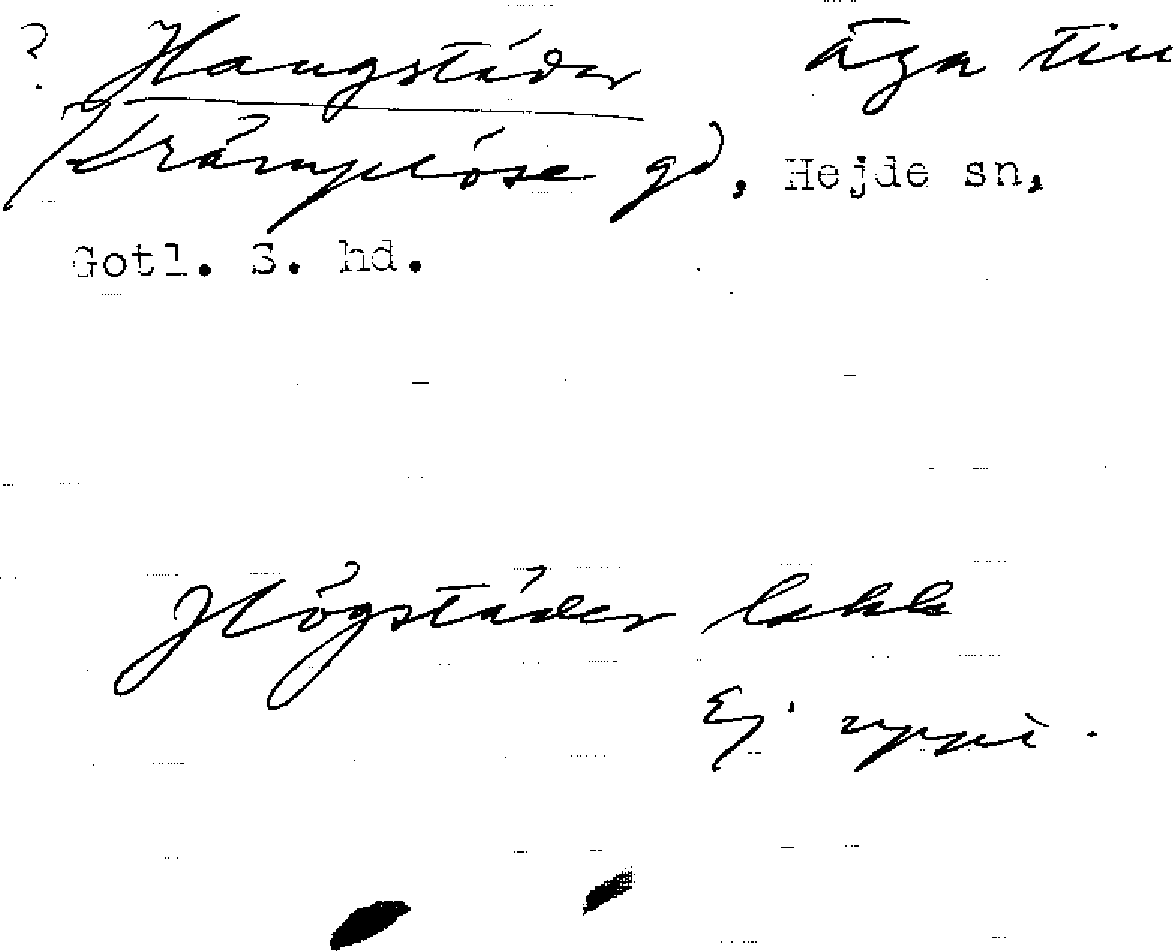 ? Haugstäder äga till
Krämplöse gd, Hejde sn,
Gotl. S. hd.
Högstäder lokk
Ej uppt.